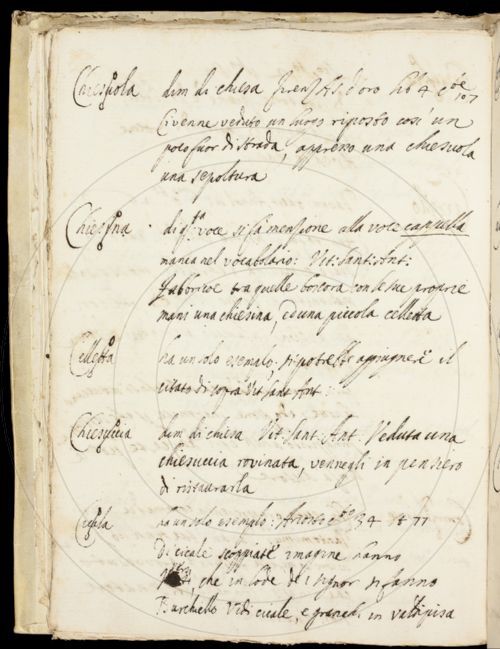 Chiesuola dim di chiesa Firenz As. d'oro lib 4, cte 107
Ci venne veduto un luoco riposto così un
poco fuor di strada, appresso una chiesuola
una sepoltura
Chiesina di qta voce si fa menzione alla voce cappella
manca nel vocabolario: Vit: Sant: Ant:
Fabbricoe tra quelle boscora con le sue proprie
mani una chiesina, ed una piccola celletta
Celletta ha un solo esempio; si potrebbe aggiugnere il
citato di sopra Vit Sant Ant:
Chiesuccia dim di chiesa Vit: Sant: Ant: Veduta una
chiesuccia rovinata, vennegli in pensiero
di ristaurarla
Cicala ha un solo esempio: Ariosto cto 34 st 77
Di cicale scoppiate imagine hanno
che in lode de i signor si fanno
Burchiello Vidi cicale, e granchi in